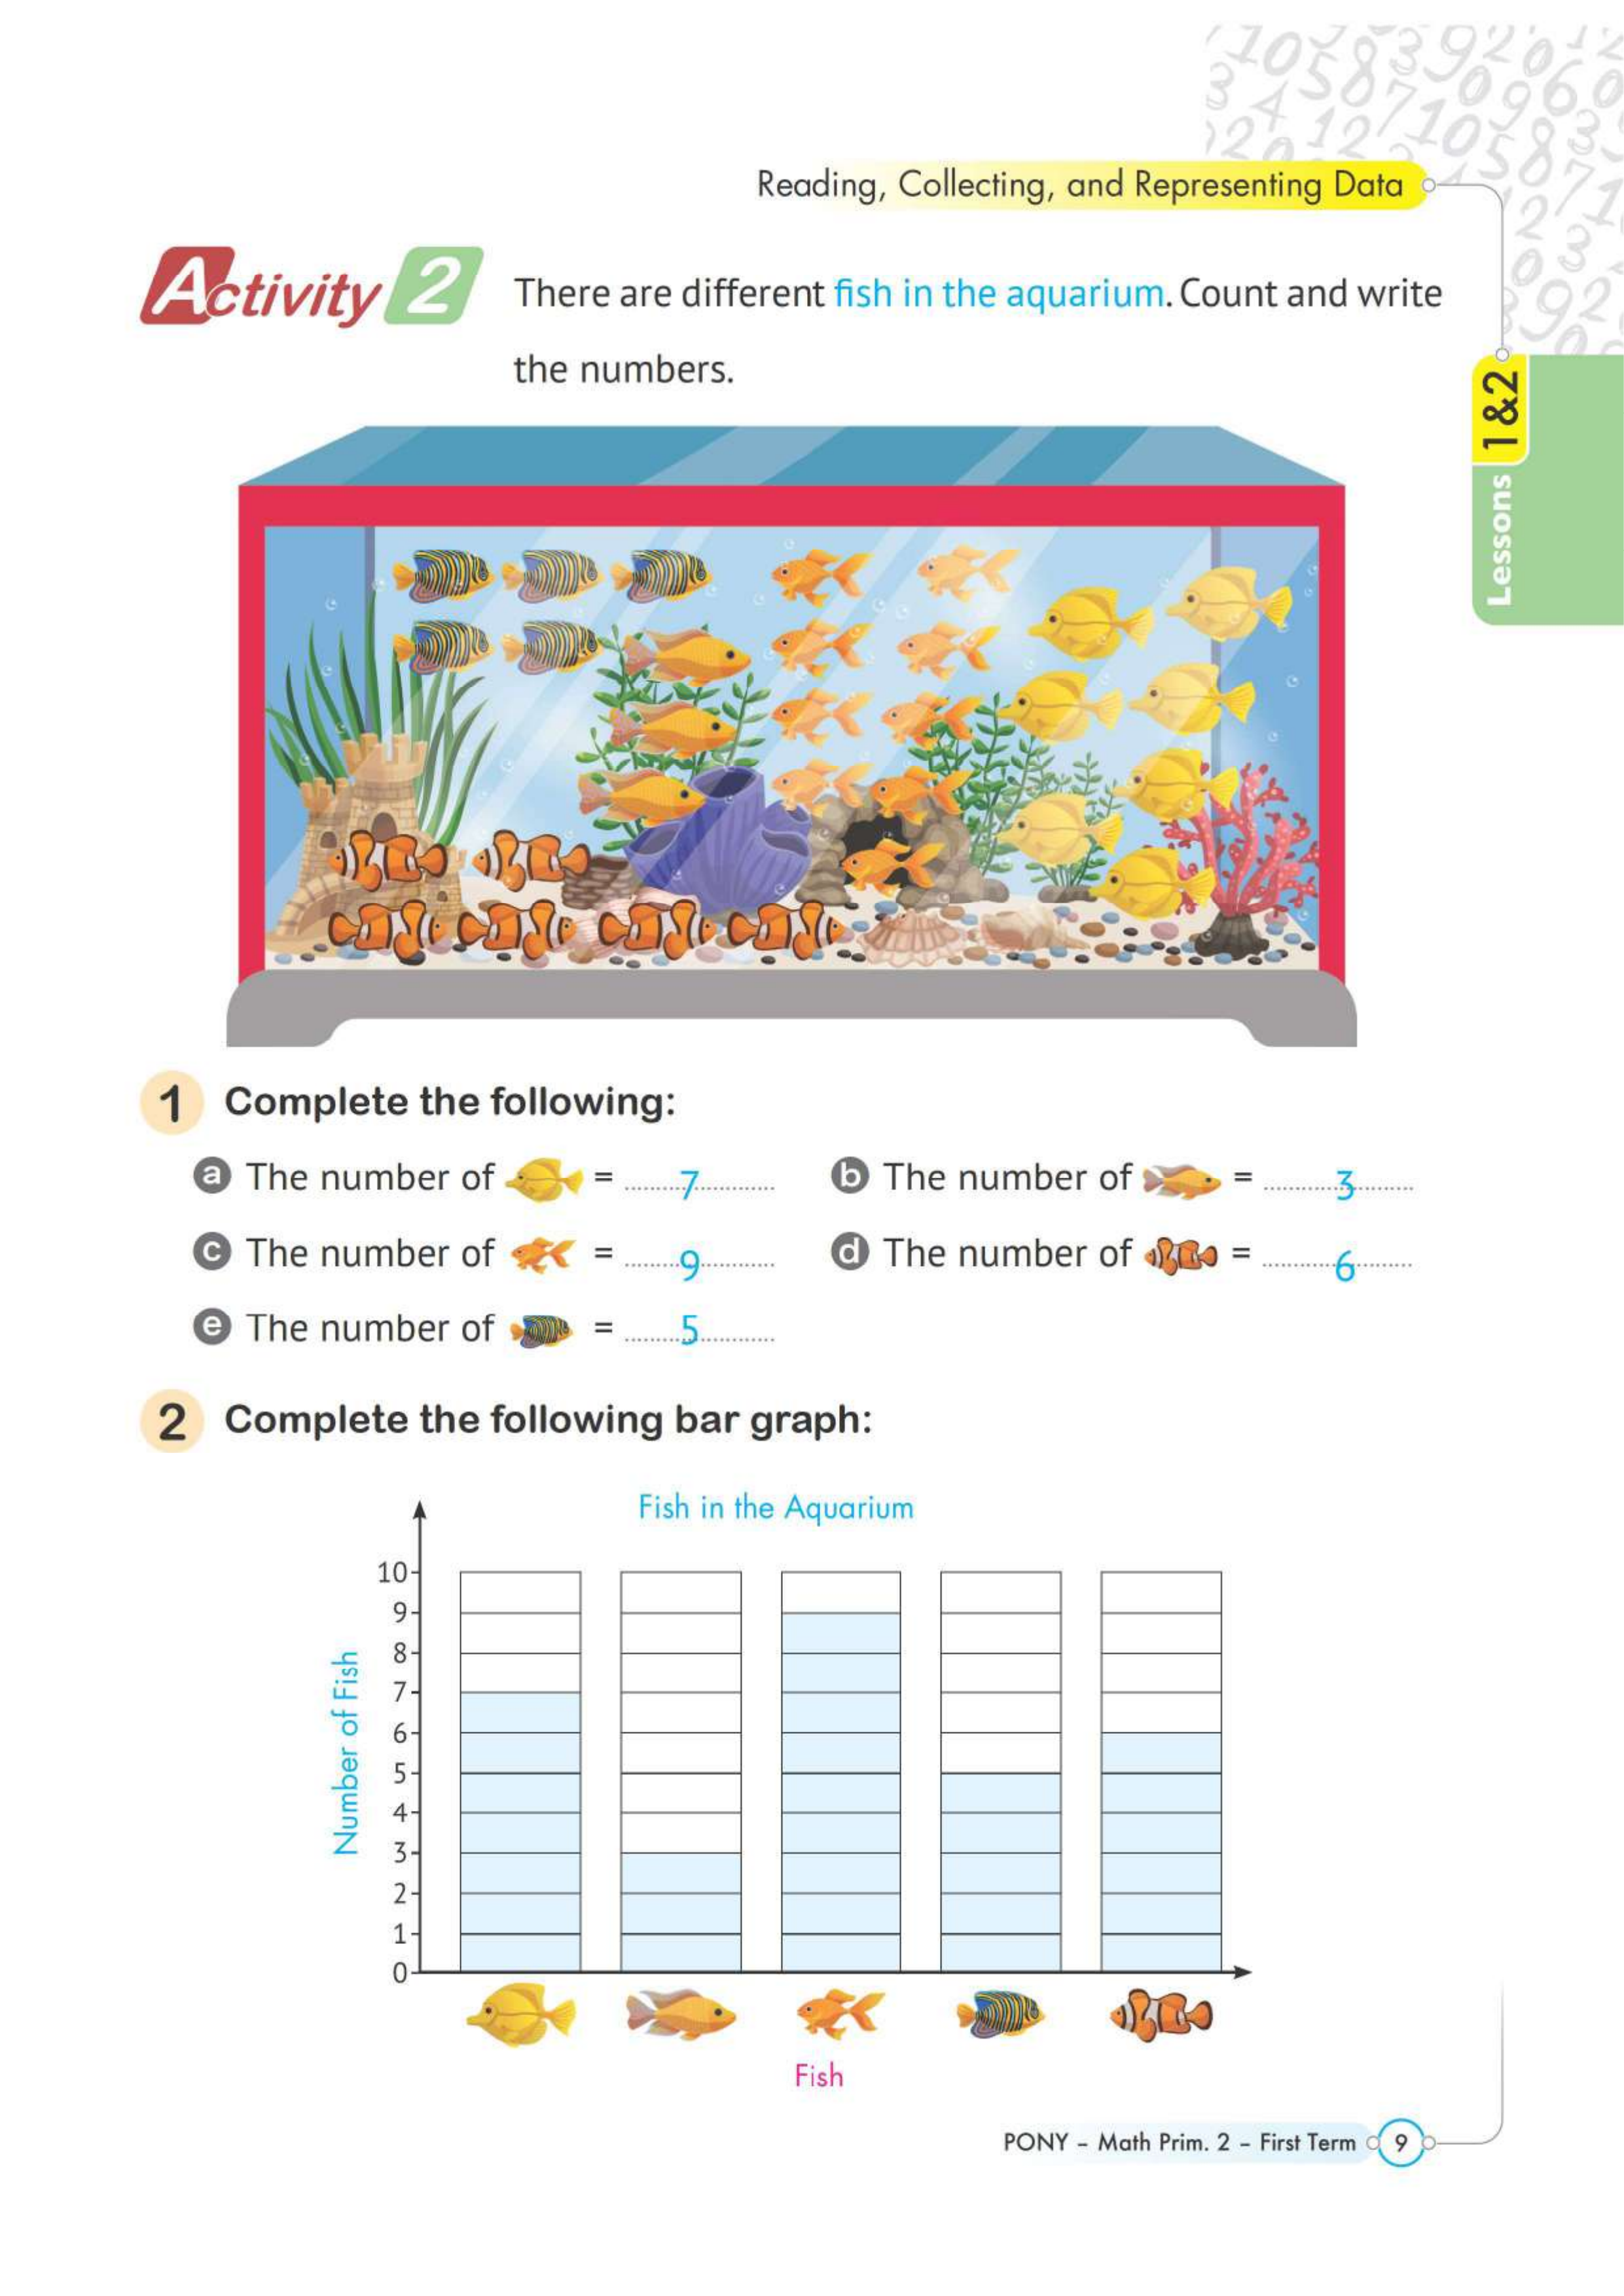 Reading, Collecting, and Representing Data
Activity 2
There are different fish in the aquarium. Count and write
the numbers.
Lessons 1&2
1 Complete the following:
a The number of = 7
b The number of = 3
c The number of = 9
d The number of = 6
e The number of = 5
2 Complete the following bar graph:
Fish in the Aquarium
Number of Fish
10
9
8
7
6
5
4
3
2
1
0
Fish
PONY - Math Prim. 2 - First Term 9